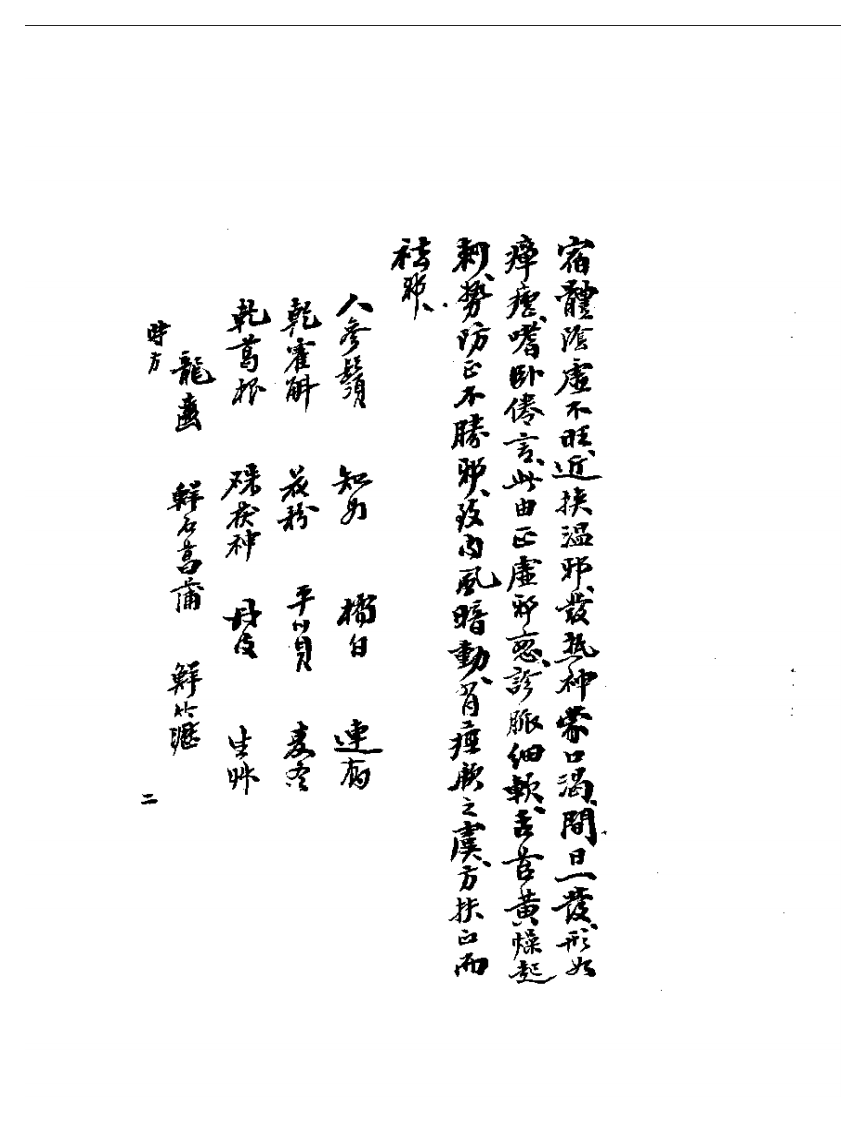 宿體陰虛不旺、近挾溫邪、發熱神蒙口渴、間日一發、形如
瘅瘧、嗜卧倦言、此由正虛邪戀、診脈細軟、舌苔黃燥起
刺、勢防正不勝邪、致內風暗動、肖痙厥之虞、方扶正而
祛邪、
人參鬚 知母 橘白 連翹
乾霍斛 花粉 平川貝 麦冬
乾葛根 硃茯神 丹皮 生艸
龍齒 鮮石菖蒲 鮮竹瀝
時方
二